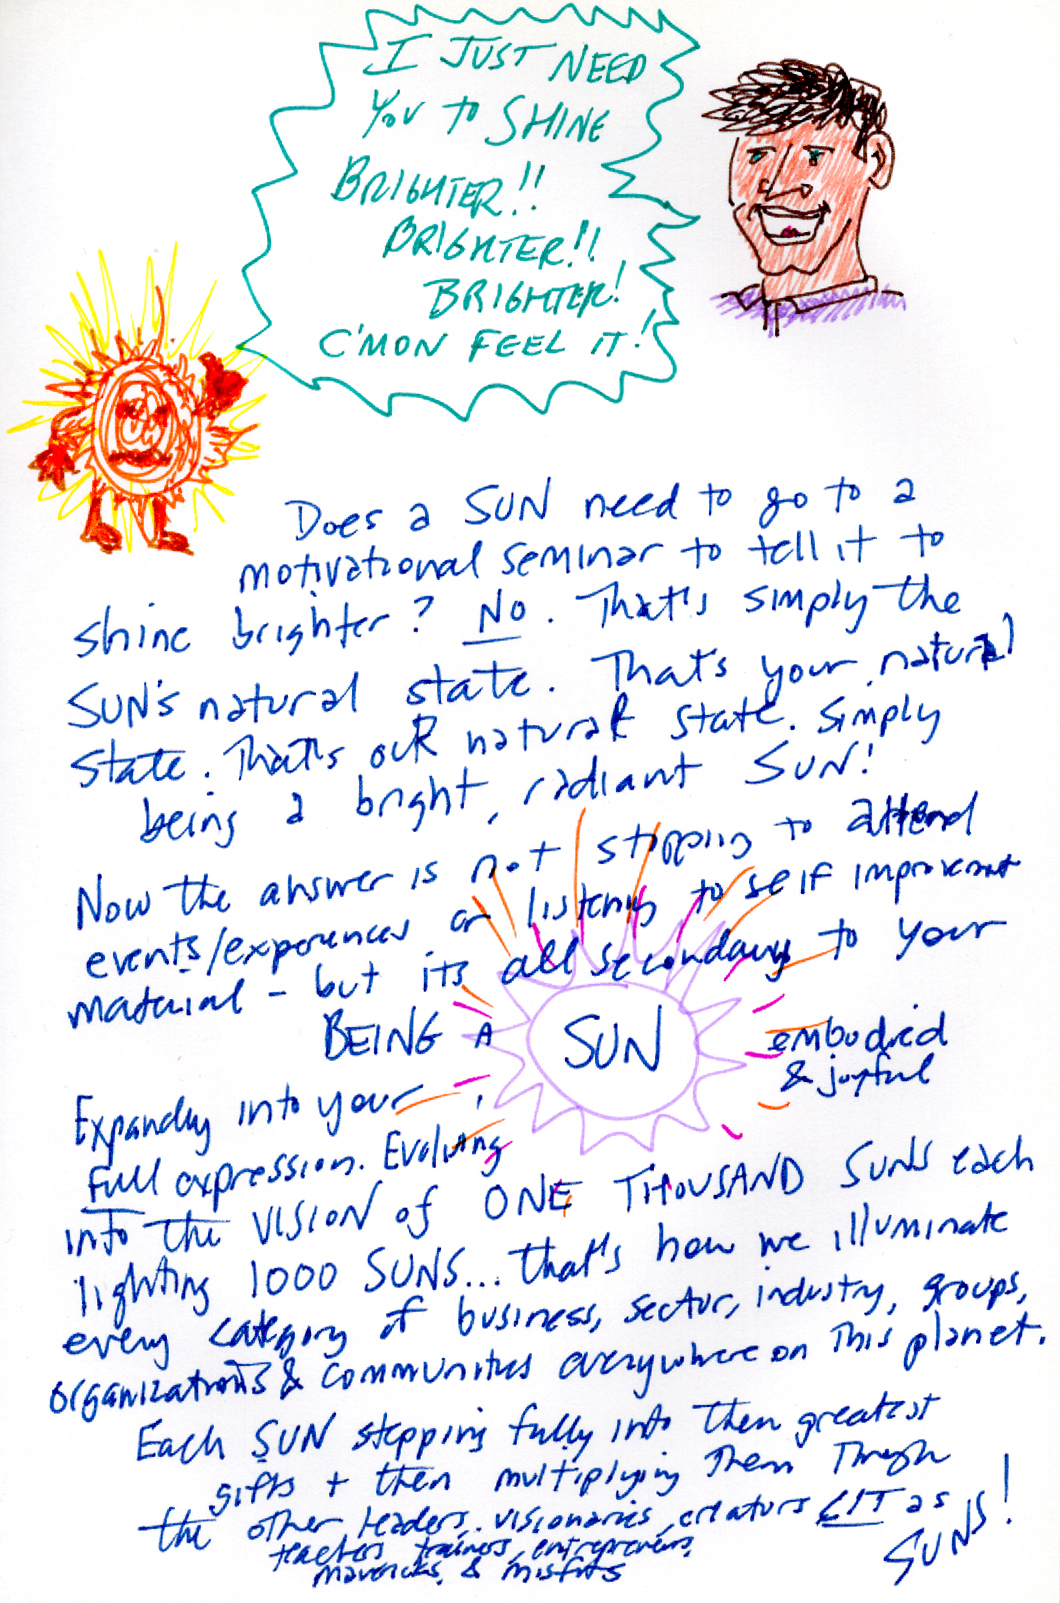 I JUST NEED
YOU TO SHINE
BRIGHTER!!
BRIGHTER!!
BRIGHTER!
C'MON FEEL IT!
Does a SUN need to go to a
motivational seminar to tell it to
shine brighter? NO. That's simply the
SUN's natural state. That's your natural
state. That's our natural state. Simply
being a bright, radiant SUN!
Now the answer is not stopping to attend
events/experiences or listening to self improvement
material - but its all secondary to your
BEING A SUN embodied
& joyful
Expanding into your
full expression. Evolving
into the VISION of ONE THOUSAND SUNS each
lighting 1000 SUNS... that's how we illuminate
every category of business, sector, industry, groups,
organizations & communities everywhere on this planet.
Each SUN stepping fully into their greatest
gifts + then multiplying them through
the other leaders, visionaries, creators LIT as
teachers, trainers, entrepreneurs,
mavericks, & misfits
SUNS!